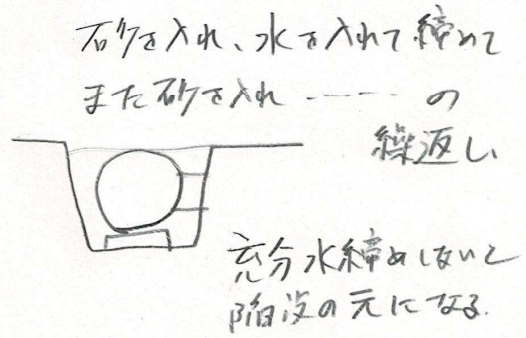 砂を入れ、水を入れて締めて
また砂を入れ ------ の
繰返し
充分水締めしないと
陥没の元になる.